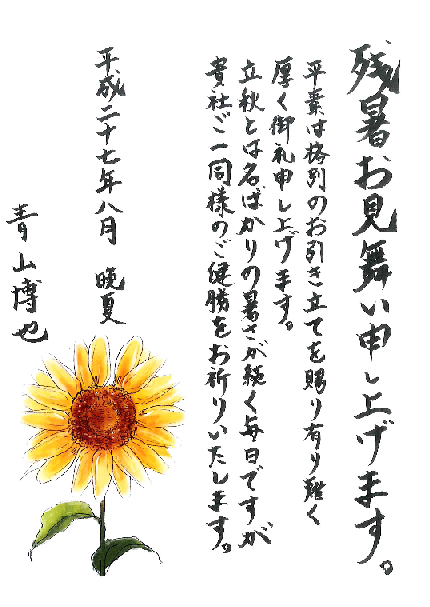 残暑お見舞い申し上げます。
平素は格別のお引き立てを賜り有り難く
厚く御礼申し上げます。
立秋とは名ばかりの暑さが続く毎日ですが
貴社ご一同様のご健勝をお祈りいたします。
平成二十七年八月　晩夏
青山博也